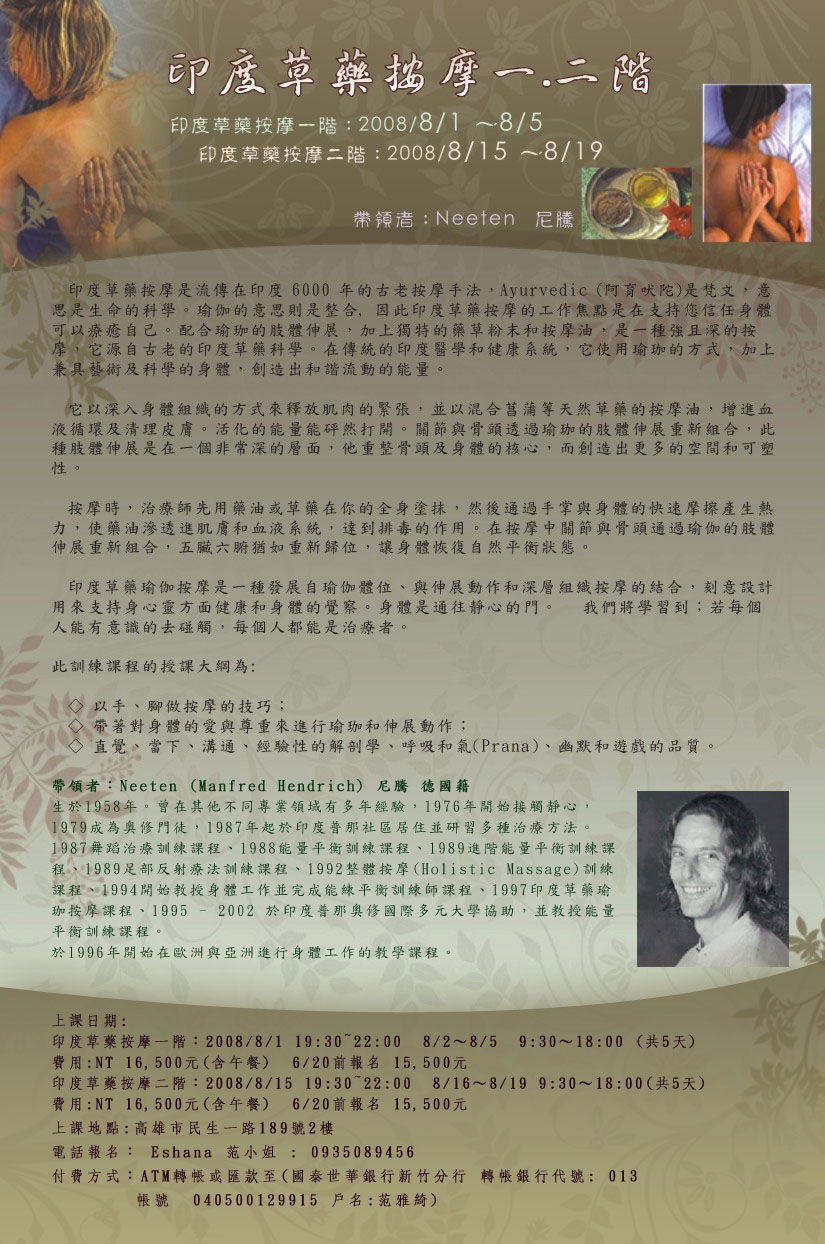 印度草藥按摩一.二階
印度草藥按摩一階：2008/8/1 ～8/5
印度草藥按摩二階：2008/8/15 ～8/19
帶領者：Neeten 尼騰
印度草藥按摩是流傳在印度 6000 年的古老按摩手法，Ayurvedic (阿育吠陀)是梵文，意
思是生命的科學。瑜伽的意思則是整合, 因此印度草藥按摩的工作焦點是在支持您信任身體
可以療癒自己。配合瑜珈的肢體伸展，加上獨特的藥草粉末和按摩油，是一種強且深的按
摩，它源自古老的印度草藥科學。在傳統的印度醫學和健康系統，它使用瑜珈的方式，加上
兼具藝術及科學的身體，創造出和諧流動的能量。
它以深入身體組織的方式來釋放肌肉的緊張，並以混合菖蒲等天然草藥的按摩油，增進血
液循環及清理皮膚。活化的能量能砰然打開。關節與骨頭透過瑜珈的肢體伸展重新組合，此
種肢體伸展是在一個非常深的層面，他重整骨頭及身體的核心，而創造出更多的空間和可塑
性。
按摩時，治療師先用藥油或草藥在你的全身塗抹，然後通過手掌與身體的快速摩擦產生熱
力，使藥油滲透進肌膚和血液系統，達到排毒的作用。在按摩中關節與骨頭通過瑜伽的肢體
伸展重新組合，五臟六腑猶如重新歸位，讓身體恢復自然平衡狀態。
印度草藥瑜伽按摩是一種發展自瑜伽體位、與伸展動作和深層組織按摩的結合，刻意設計
用來支持身心靈方面健康和身體的覺察。身體是通往靜心的門。 我們將學習到；若每個
人能有意識的去碰觸，每個人都能是治療者。
此訓練課程的授課大綱為:
◇ 以手、腳做按摩的技巧；
◇ 帶著對身體的愛與尊重來進行瑜珈和伸展動作；
◇ 直覺、當下、溝通、經驗性的解剖學、呼吸和氣(Prana)、幽默和遊戲的品質。
帶領者：Neeten (Manfred Hendrich) 尼騰 德國籍
生於1958年。曾在其他不同專業領域有多年經驗，1976年開始接觸靜心，
1979成為奧修門徒，1987年起於印度普那社區居住並研習多種治療方法。
1987舞蹈治療訓練課程、1988能量平衡訓練課程、1989進階能量平衡訓練課
程、1989足部反射療法訓練課程、1992整體按摩(Holistic Massage)訓練
課程、1994開始教授身體工作並完成能練平衡訓練師課程、1997印度草藥瑜
珈按摩課程、1995 - 2002 於印度普那奧修國際多元大學協助，並教授能量
平衡訓練課程。
於1996年開始在歐洲與亞洲進行身體工作的教學課程。
上課日期:
印度草藥按摩一階：2008/8/1 19:30~22:00 8/2～8/5 9:30～18:00 (共5天)
費用:NT 16,500元(含午餐) 6/20前報名 15,500元
印度草藥按摩二階：2008/8/15 19:30~22:00 8/16～8/19 9:30～18:00(共5天)
費用:NT 16,500元(含午餐) 6/20前報名 15,500元
上課地點:高雄市民生一路189號2樓
電話報名： Eshana 范小姐 : 0935089456
付費方式：ATM轉帳或匯款至(國泰世華銀行新竹分行 轉帳銀行代號: 013
帳號 040500129915 戶名:范雅綺)